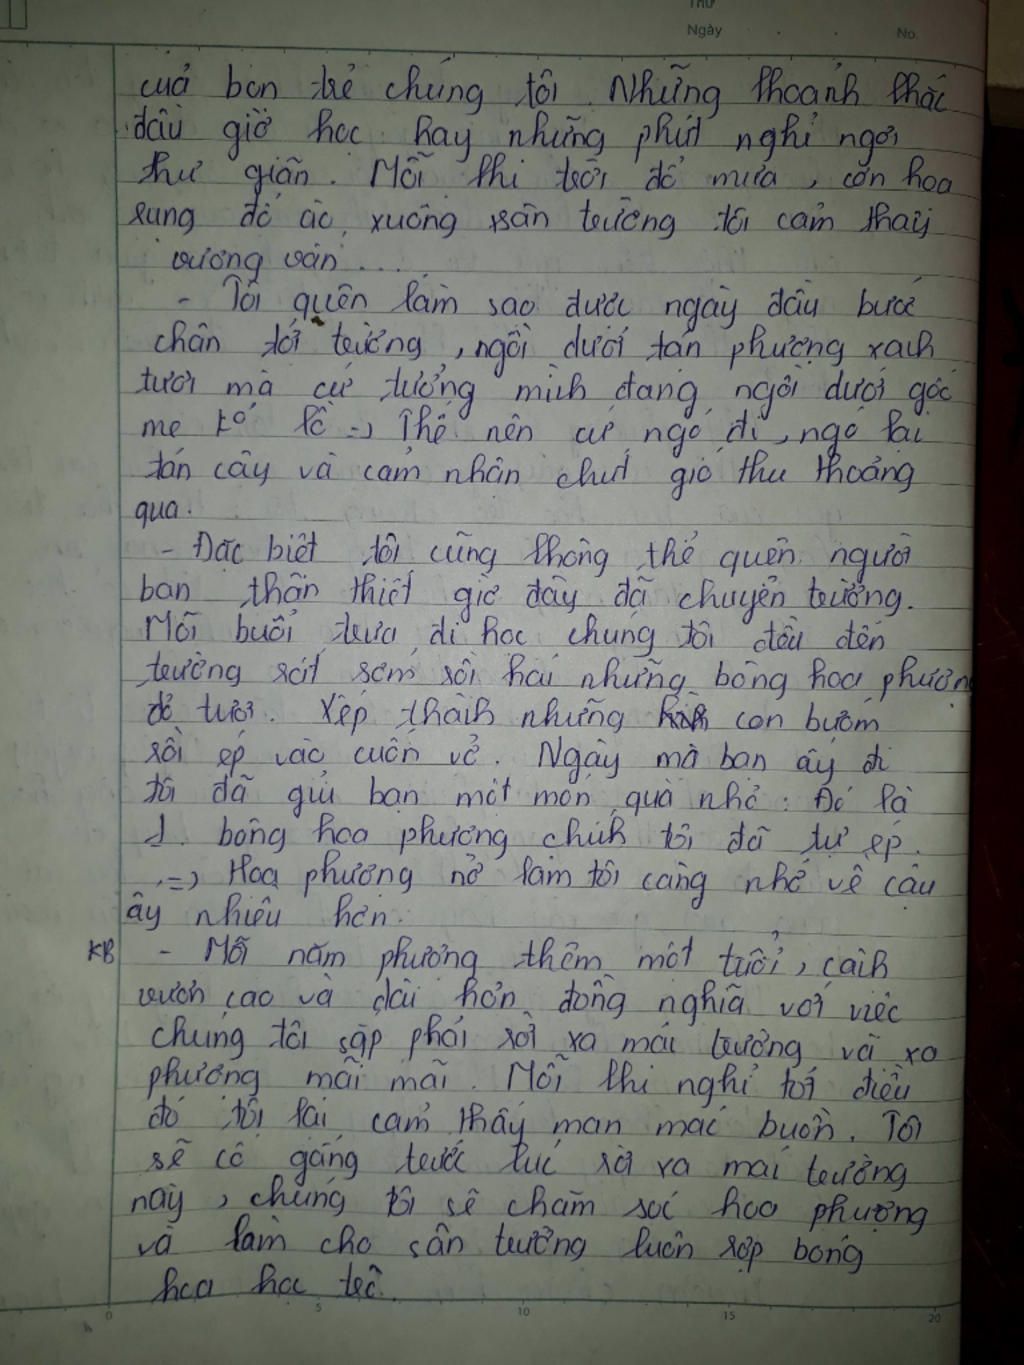 Thứ
Ngày . . No.
của bọn trẻ chúng tôi. Những khoảnh khắc
đầu giờ học hay những phút nghỉ ngơi
thư giãn. Mỗi khi trời đổ mưa, cơn hoa
rụng đỏ ào xuống sân trường tôi cảm thấy
vương vấn ....
- Tôi quên làm sao được ngày đầu bước
chân tới trường, ngồi dưới tán phượng xanh
tươi mà cứ tưởng mình đang ngồi dưới gốc
me khổng lồ => Thế nên cứ ngó đi, ngó lại
tán cây và cảm nhận chút gió thu thoảng
qua.
- Đặc biệt tôi cũng không thể quên người
bạn thân thiết giờ đây đã chuyển trường.
Mỗi buổi trưa đi học chúng tôi đều đến
trường rất sớm rồi hái những bông hoa phượng
đỏ tươi. Xếp thành những con bướm
rồi ép vào cuốn vở. Ngày mà bạn ấy đi
tôi đã gửi bạn một món quà nhỏ: Đó là
1 bông hoa phượng chính tôi đã tự ép.
=> Hoa phượng nở làm tôi càng nhớ về cậu
ấy nhiều hơn.
KB - Mỗi năm phượng thêm một tuổi, cành
vươn cao và dài hơn đồng nghĩa với việc
chúng tôi sắp phải rời xa mái trường và xa
phượng mãi mãi. Mỗi khi nghĩ tới điều
đó tôi lại cảm thấy man mác buồn. Tôi
sẽ cố gắng trước lúc rời xa mái trường
này, chúng tôi sẽ chăm sóc hoa phượng
và làm cho sân trường luôn rợp bóng
hoa học trò.
0 5 10 15 20